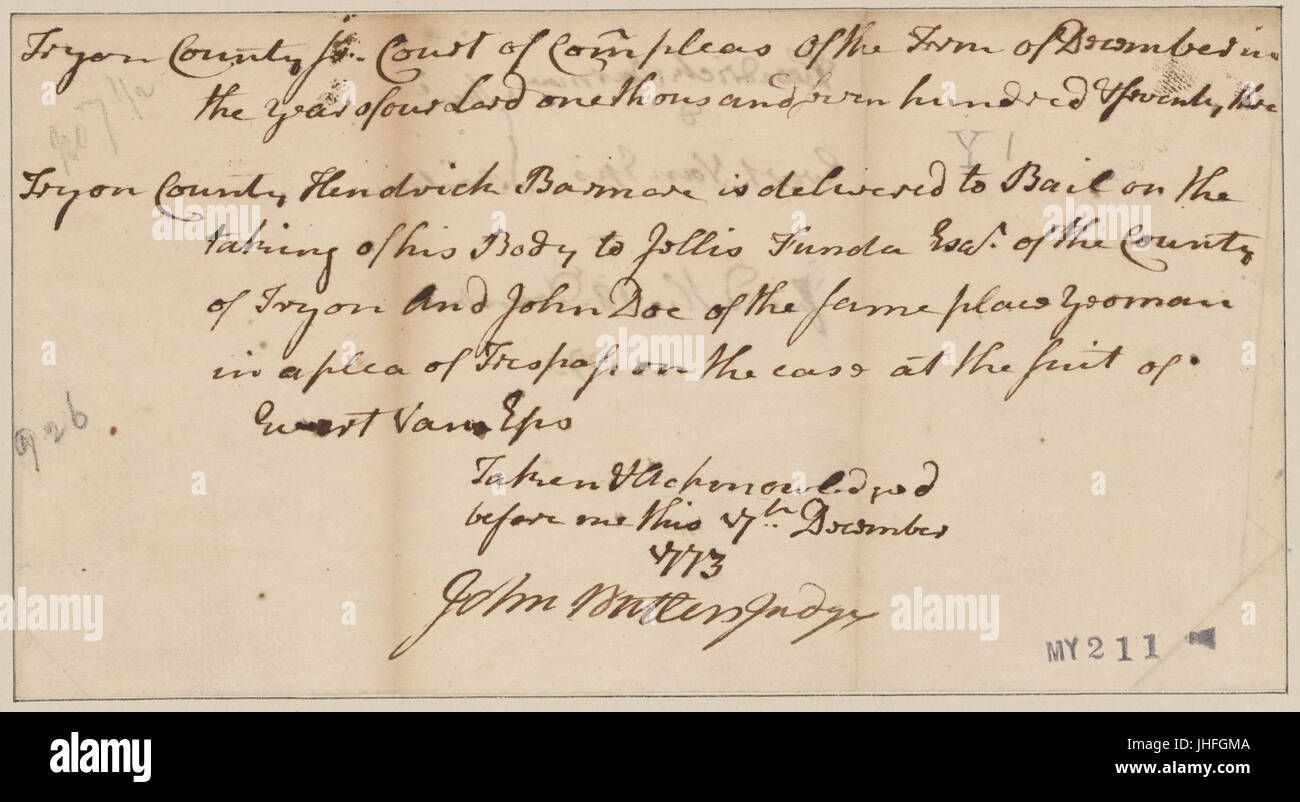 Tryon County Ss. Court of Com̃ pleas of the Term of December in
the year of our Lord one thousand seven hundred & seventy three
Tryon County Hendrick Barmore is delivered to Bail on the
taking of his Body to Jellis Funda Esqr. of the County
of Tryon And John Doe of the same place yeoman
in a plea of Trespass on the case at the suit of
Evert Van Eps
Taken & Acknowledged
before me this 17th. December
1773
John Butler Judge
926
207 1/2
MY 211
alamy
Image ID: JHFGMA
www.alamy.com